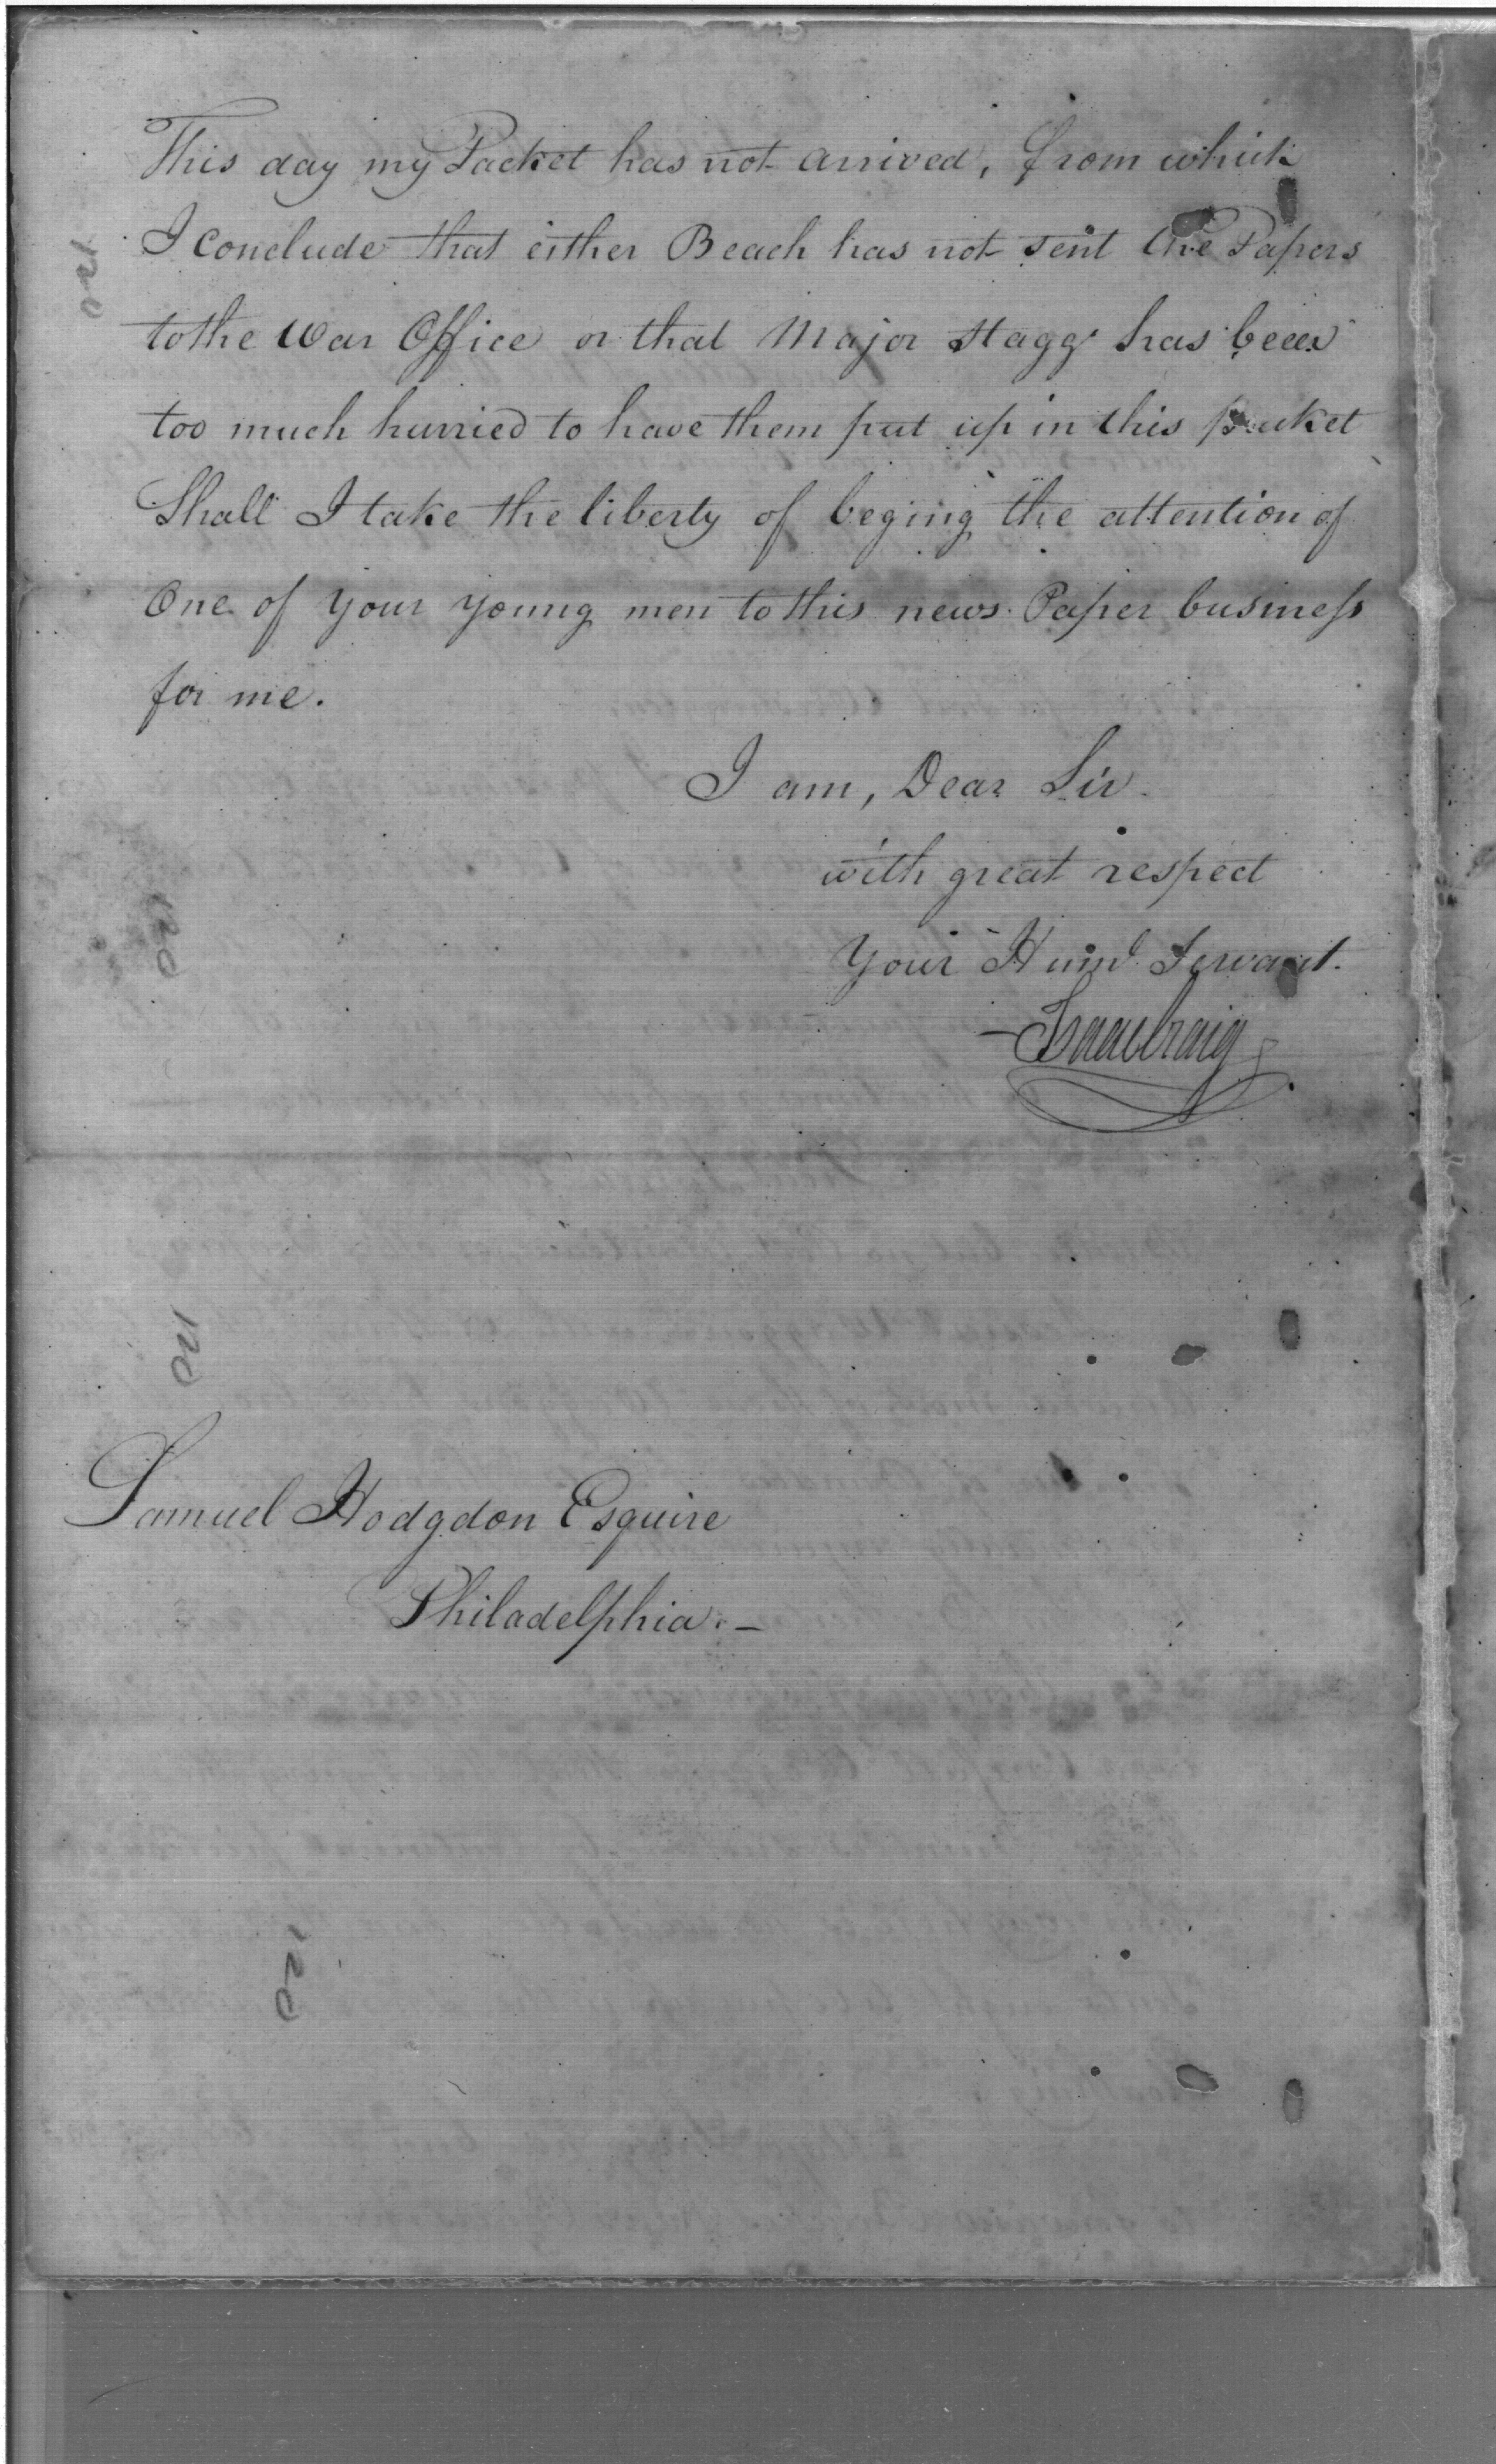 This day my Packet has not arrived, from which
I conclude that either Beach has not sent the Papers
to the War Office or that Major Stagg has been
too much hurried to have them put up in this packet
Shall I take the liberty of beging the attention of
One of your young men to this news Paper business
for me.
I am, Dear Sir
with great respect
Your Huml Servant.
Isaac Craig
Samuel Hodgdon Esquire
Philadelphia. -
120
120
120
120